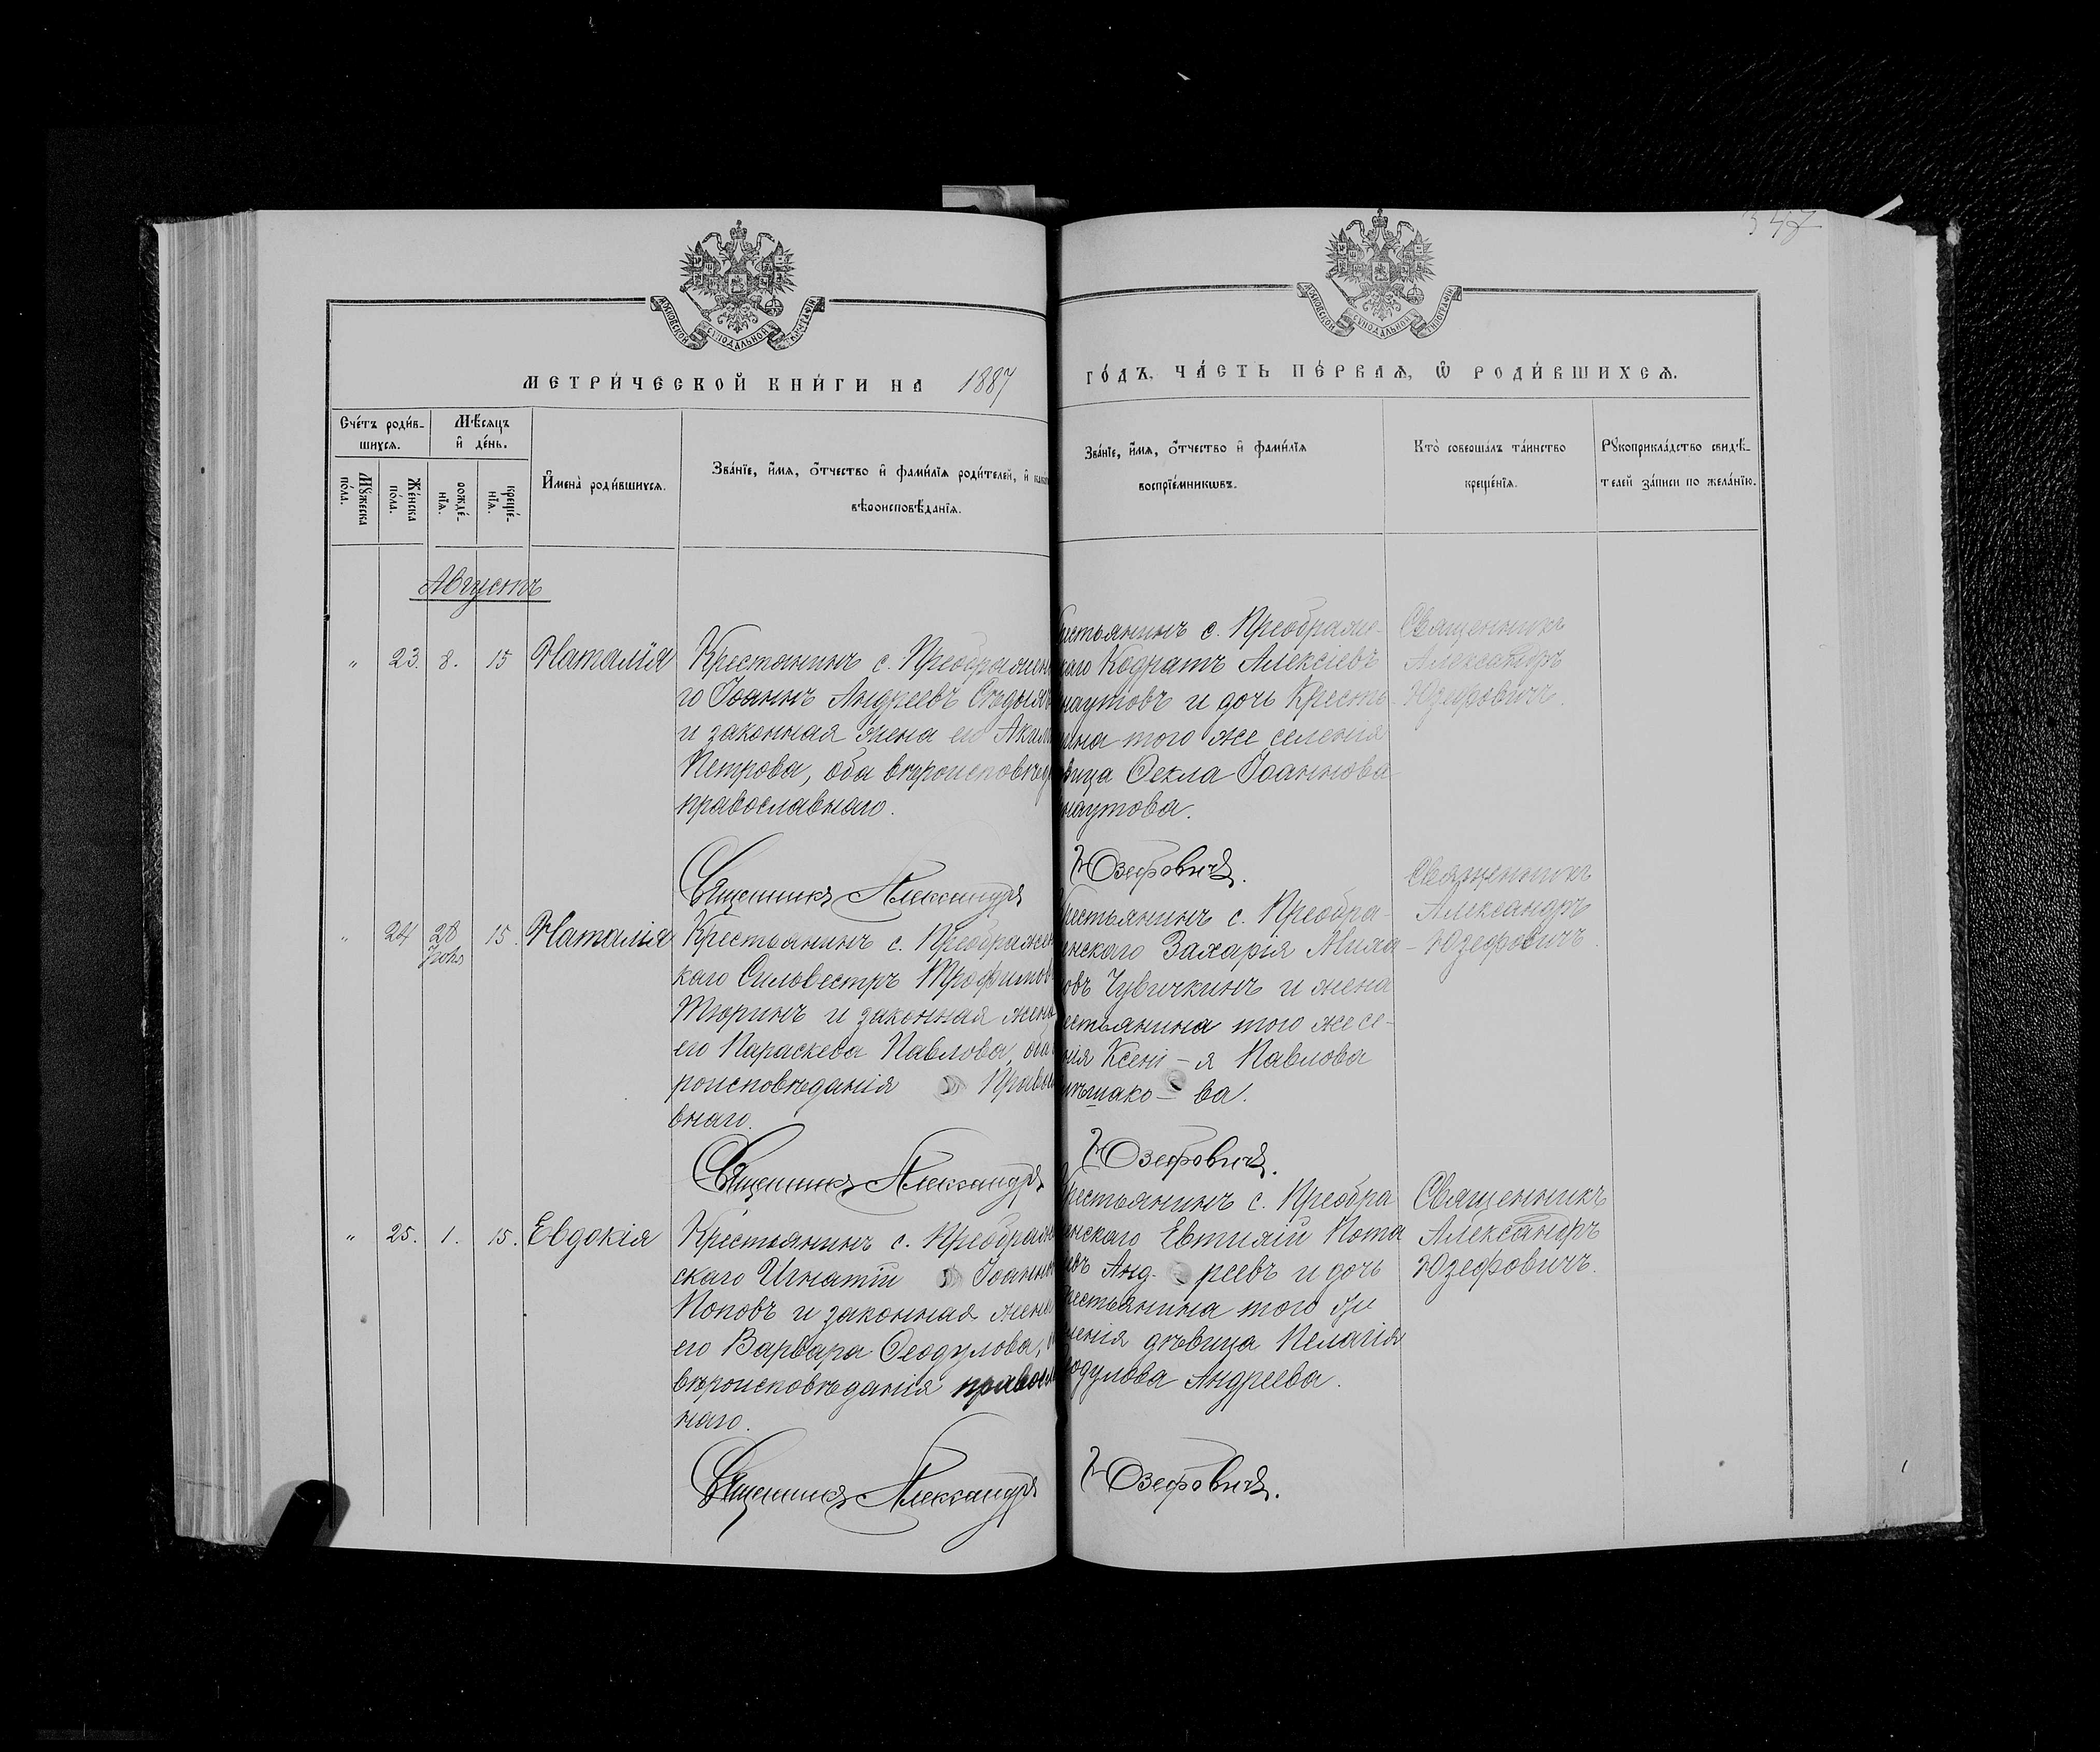 347
МОСКОВСКОЙ СУНОДАЛЬНОЙ ТИПОГРАФІИ
МОСКОВСКОЙ СУНОДАЛЬНОЙ ТИПОГРАФІИ
МЕТРИ́ЧЕСКОЙ КНИ́ГИ НА 1887
ГО́ДЪ, ЧА́СТЬ ПЕ́РВАѦ, Ѡ҆ РОДИ́ВШИХСѦ.
Сче́тъ роди́в-
шихсѧ.
Мꙋжеска
по́ла.
Же́нска
по́ла.
Мѣ́сѧцъ
и҆ де́нь.
рожде́-
нїѧ.
креще́-
нїѧ.
И҆мена̀ роди́вшихсѧ.
Зва́нїе, и҆́мѧ, ѻ҆́тчество и҆ фами́лїѧ роди́телей, и҆
вѣроисповѣ́данїѧ.
Зва́нїе, и҆́мѧ, ѻ҆́тчество и҆ фами́лїѧ
воспрїе́мникѡвъ.
Кто̀ соверша́лъ та́инство
креще́нїѧ.
Рꙋкоприкла́дство свидѣ́-
телей за́писи по жела́нїю.
Августъ
" 23. 8. 15 Наталія
Крестьянинъ с. Преображен
го Іоаннъ Андреевъ
и законная жена его Аким
Петрова, оба вѣроисповѣд
православнаго.
Священникъ Александръ
рестьянинъ с. Преображе-
каго Кодратъ Алексіевъ
наутовъ и дочь Кресть
нина того же селенія
вица Ѳекла Іоаннова
наутова.
Юзефовичъ.
Священникъ
Александръ
Юзефовичъ.
" 24 28 Іюля 15. Наталія
Крестьянинъ с. Преображен
каго Сильвестръ Трофимов
Тюринъ и законная жена
его Параскева Павлова, оба
роисповѣданія Правос
внаго.
Священникъ Александръ
рестьянинъ с. Преобра-
енскаго Захарія Миха-
овъ Чувичкинъ и жена
естьянина того же се-
нія Ксені-я Павлова
ньшако-ва.
Юзефовичъ.
Священникъ
Александръ
Юзефовичъ.
" 25. 1. 15. Евдокія
Крестьянинъ с. Преображ
скаго Игнатій Іоанно
Поповъ и законная жена
его Варвара Ѳеодулова,
вѣроисповѣданія правосл
наго.
Священникъ Александръ
рестьянинъ с. Преобра
енскаго Евтихій Пота
евъ Анд-реевъ и дочь
рестьянина того же
ленія дѣвица Пелагія
одулова Андреева.
Юзефовичъ.
Священникъ
Александръ
Юзефовичъ.